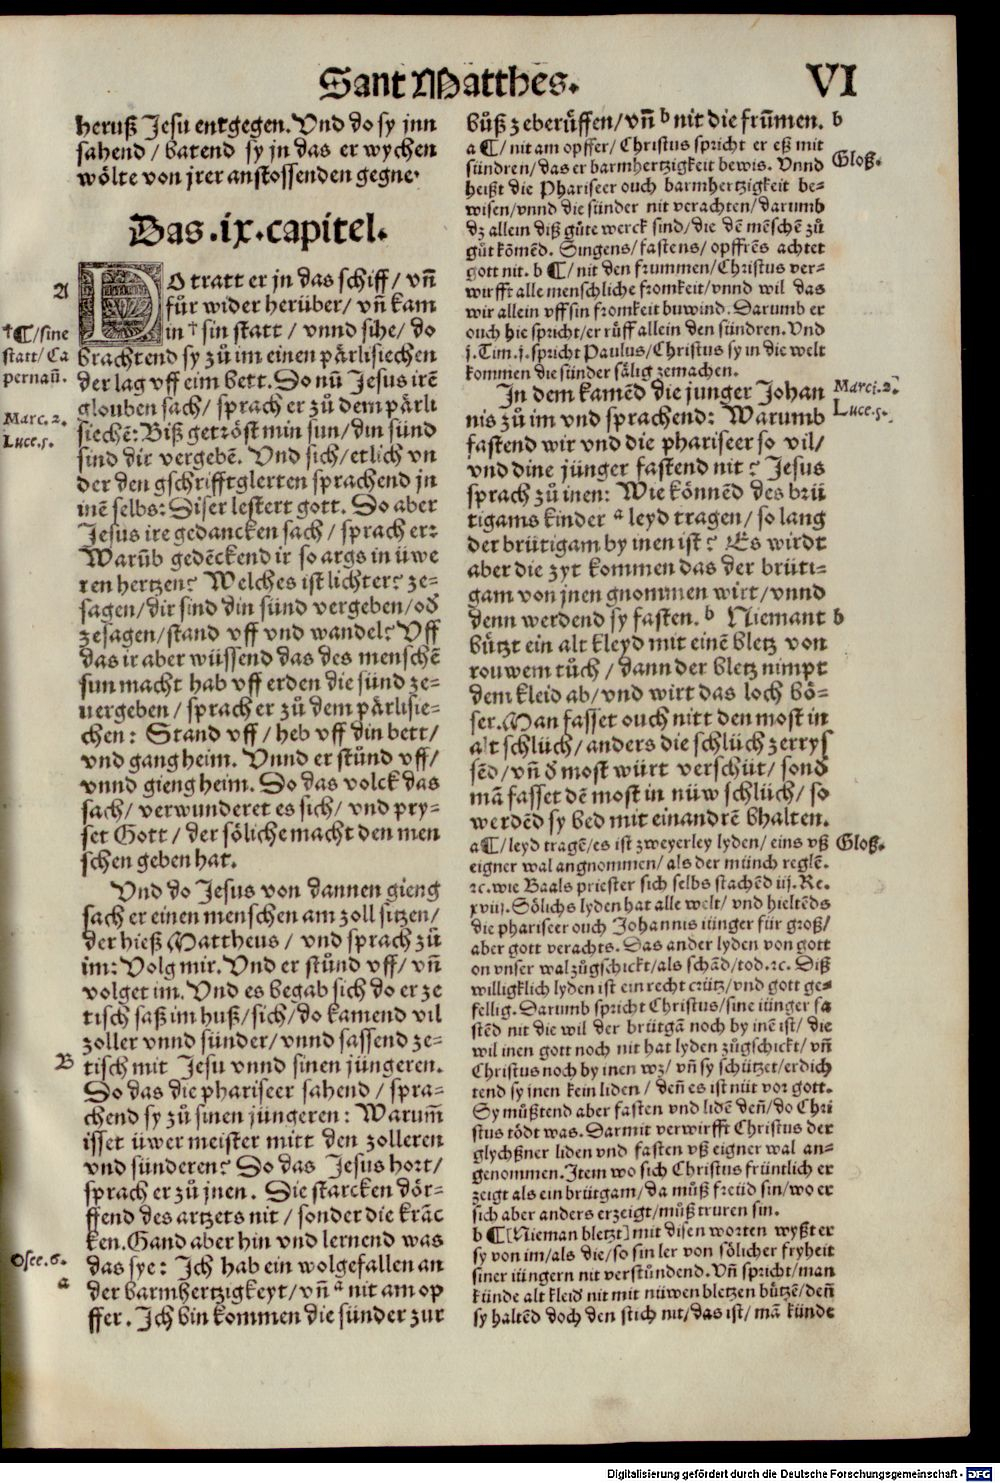 Sant Matthes.
VI
heruß Jesu entgegen. Vnd do sy jnn
sahend / batend sy jn das er wychen
wölte von jrer anstossenden gegne.
Das .ix. capitel.
A
DO tratt er jn das schiff / vñ
für wider herüber / vñ kam
in † sin statt / vnnd sihe / do
brachtend sy zů im einen pärlisiechen
der lag vff eim bett. Do nů Jesus irẽ
glouben sach / sprach er zů dem pärli
siechẽ: Biß getröst min sun / din sünd
sind dir vergebẽ. Vnd sich / etlich vn
der den gschrifftglerten sprachend jn
inẽ selbs: Diser lestert gott. Do aber
Jesus ire gedancken sach / sprach er:
Warũb gedẽckend ir so args in üwe
ren hertzen? Welches ist lichter? ze-
sagen / dir sind din sünd vergeben / oď
zesagen / stand vff vnd wandel? Vff
das ir aber wüssend das des menschẽ
sun macht hab vff erden die sünd ze-
uergeben / sprach er zů dem pärlisie-
chen: Stand vff / heb vff din bett /
vnd gang heim. Vnnd er stůnd vff /
vnnd gieng heim. Do das volck das
sach / verwunderet es sich / vnd pry-
set Gott / der söliche macht den men
schen geben hat.
†¶ / sine
statt / Ca
pernaũ.
Marc. 2.
Luce. 5.
Vnd do Jesus von dannen gieng
sach er einen menschen am zoll sitzen /
der hieß Mattheus / vnd sprach zů
im: Volg mir. Vnd er stůnd vff / vñ
volget im. Vnd es begab sich do er ze
tisch saß im huß / sich / do kamend vil
zoller vnnd sünder / vnnd sassend ze-
tisch mit Jesu vnnd sinen jüngeren.
Do das die phariseer sahend / spra-
chend sy zů sinen jüngeren: Warum̃
isset üwer meister mitt den zolleren
vnd sünderen? Do das Jesus hort /
sprach er zů jnen. Die starcken dör-
ffend des artzets nit / sonder die krãc
ken. Gand aber hin vnd lernend was
das sye: Ich hab ein wolgefallen an
der barmhertzigkeyt / vñ ª nit am op
ffer. Ich bin kommen die sünder zur
B
Osee. 6.
a
bůß zeberůffen / vñ b nit die frũmen.
b
a ¶ / nit am opffer / Christus spricht er eß mit
sündren / das er barmhertzigkeit bewis. Vnnd
heißt die Phariseer ouch barmhertzigkeit be-
wisen / vnnd die sünder nit verachten / darumb
dz allein diß gůte werck sind / die dẽ mẽschẽ zů
gůt kõmẽd. Singens / fastens / opffrẽs achtet
gott nit. b ¶ / nit den frummen / Christus ver-
wirfft alle menschliche fromkeit / vnnd wil das
wir allein vff sin fromkeit buwind. Darumb er
ouch hie spricht / er rüff allein den sündren. Vnd
j. Tim. j. spricht Paulus / Christus sy in die welt
kommen die sünder sälig zemachen.
Gloß.
In dem kamẽd die junger Johan
nis zů im vnd sprachend: Warumb
fastend wir vnd die phariseer so vil /
vnd dine jünger fastend nit? Jesus
sprach zů inen: Wie könnẽd des brü
tigams kinder ª leyd tragen / so lang
der brütigam by inen ist? Es wirdt
aber die zyt kommen das der brüti-
gam von jnen gnommen wirt / vnnd
denn werdend sy fasten. b Niemant
bützt ein alt kleyd mit einẽ bletz von
rouwem tůch / dann der bletz nimpt
dem kleid ab / vnd wirt das loch bö-
ser. Man fasset ouch nitt den most in
alt schlüch / anders die schlüch zerrys
sẽd / vñ ď most würt verschüt / sonď
mã fasset dẽ most in nüw schlüch / so
werdẽd sy bed mit einandrẽ bhalten.
Marci. 2.
Luce. 5.
b
a ¶ / leyd tragẽ / es ist zweyerley lyden / eins vß
eigner wal angnommen / als der münch reglẽ.
ꝛc. wie Baals priester sich selbs stachẽd iij. Re.
xviij. Sölichs lyden hat alle welt / vnd hieltẽds
die phariseer ouch Johannis iünger für groß /
aber gott verachts. Das ander lyden von gott
on vnser wal zůgschickt / als schãd / tod. ꝛc. Diß
willigklich lyden ist ein recht crütz / vnd gott ge-
fellig. Darumb spricht Christus / sine iünger fa
stẽd nit die wil der brütgã noch by inẽ ist / die
wil inen gott noch nit hat lyden zůgschickt / vñ
Christus noch by inen wz / vñ sy schützet / erdich
tend sy inen kein liden / deñ es ist nüt vor gott.
Sy müßtend aber fasten vnd lidẽ deñ / do Chri
stus tödt was. Darmit verwirfft Christus der
glychßner liden vnd fasten vß eigner wal an-
genommen. Item wo sich Christus früntlich er
zeigt als ein brütgam / da můß freüd sin / wo er
sich aber anders erzeigt / můß truren sin.
b ¶ [Nieman bletzt] mit disen worten wyßt er
sy von im / als die / so sin ler von sölicher fryheit
siner iüngern nit verstůndend. Vñ spricht / man
künde alt kleid nit mit nüwen bletzen bützẽ / deñ
sy haltẽd doch den stich nit / das ist / mã künde
Gloß.
Digitalisierung gefördert durch die Deutsche Forschungsgemeinschaft - DFG